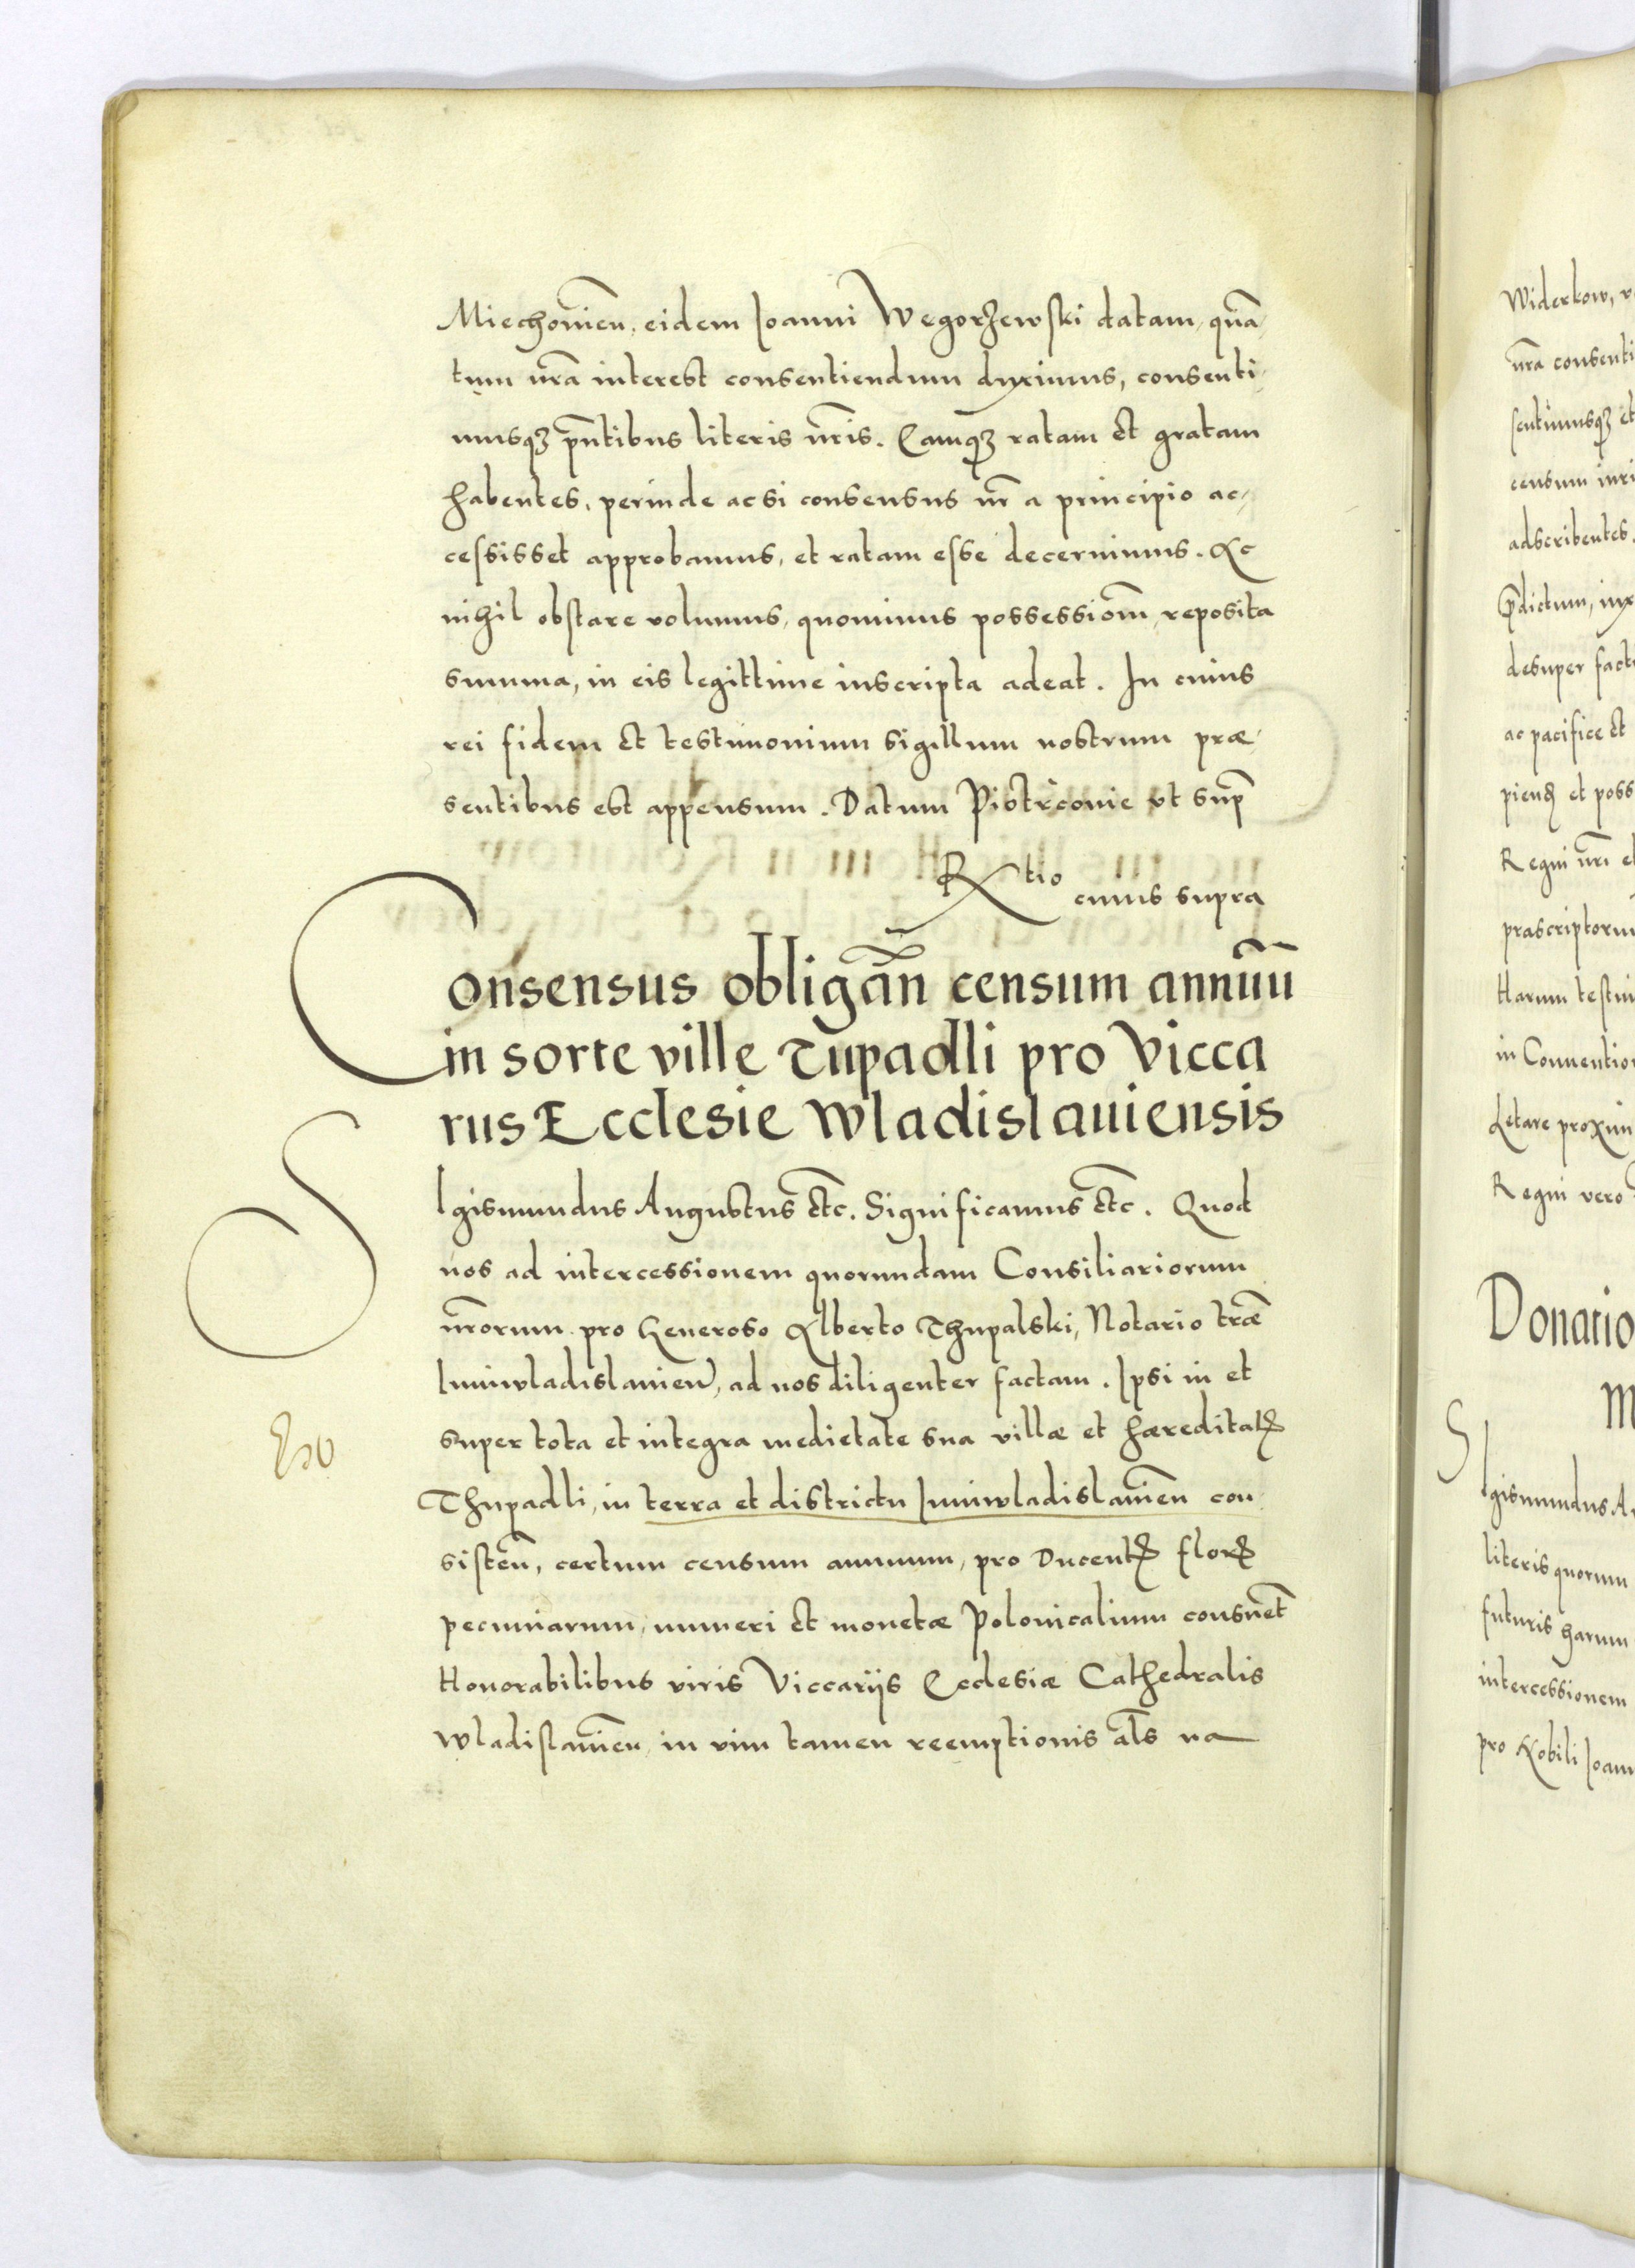 Miechovień, eidem Ioanni Wegorzewski datam, quā
tum nrā interest consentiendum duximus, consenti
musqꝫ pn̄tibus literis nr̄is. Eamqꝫ ratam et gratam
habentes, perinde ac si consensus nr̄ a principio ac-
cessisset approbamus, et ratam esse decernimus. Ac
nihil obstare volumus, quominus possessiōm, reposita
summa, in eis legittime inscripta adeat. In cuius
rei fidem et testimonium sigillum nostrum præ-
sentibus est appensum. Datum Piotrconie ut sup̄
Rtio cuius supra
Consensus obligān censum annuū
in sorte ville Tupadli pro Vicca
riis Ecclesie Wladislauiensis
SIgismundus Augustus etc̄. Significamus etc̄. Quod
nos ad intercessionem quorundam Consiliariorum
nr̄orum pro Generoso Alberto Thupalski, Notario tr̄æ
Iuniwladislauien̄, ad nos diligenter factam. Ipsi in et
super tota et integra medietate sua villæ et hæreditatꝭ
Thupadli, in terra et districtu Iuniwladislauien̄ con
sisten̄, certum censum annuum, pro Ducentꝭ florꝭ
pecuniarum, numeri et monetæ Polonicalium consuet̄
Honorabilibus viris Viccariis Ecclesiæ Cathedralis
Wladislauien̄, in vim tamen reemptionis al̄s na
Widerkow,
nrā consenti
sentimusqꝫ et
censum
adscribentes.
p̄dictum,
desuper
ac pacifice et
et poss
Regni nr̄i
præscriptorum
Harum
in Conuention
Lætare
Regni vero
Donatio
M
SIgismundus
literis quorum
futuris harum
intercessionem
pro Nobili Ioan